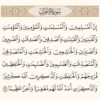 إِنَّ ٱلْمُسْلِمِينَ وَٱلْمُسْلِمَٰتِ وَٱلْمُؤْمِنِينَ وَٱلْمُؤْمِنَٰتِ
وَٱلْقَٰنِتِينَ وَٱلْقَٰنِتَٰتِ وَٱلصَّٰدِقِينَ وَٱلصَّٰدِقَٰتِ
وَٱلصَّٰبِرِينَ وَٱلصَّٰبِرَٰتِ وَٱلْخَٰشِعِينَ وَٱلْخَٰشِعَٰتِ
وَٱلْمُتَصَدِّقِينَ وَٱلْمُتَصَدِّقَٰتِ وَٱلصَّٰٓئِمِينَ وَٱلصَّٰٓئِمَٰتِ
وَٱلْحَٰفِظِينَ فُرُوجَهُمْ وَٱلْحَٰفِظَٰتِ وَٱلذَّٰكِرِينَ ٱللَّهَ كَثِيرًا
وَٱلذَّٰكِرَٰتِ أَعَدَّ ٱللَّهُ لَهُم مَّغْفِرَةً وَأَجْرًا عَظِيمًا